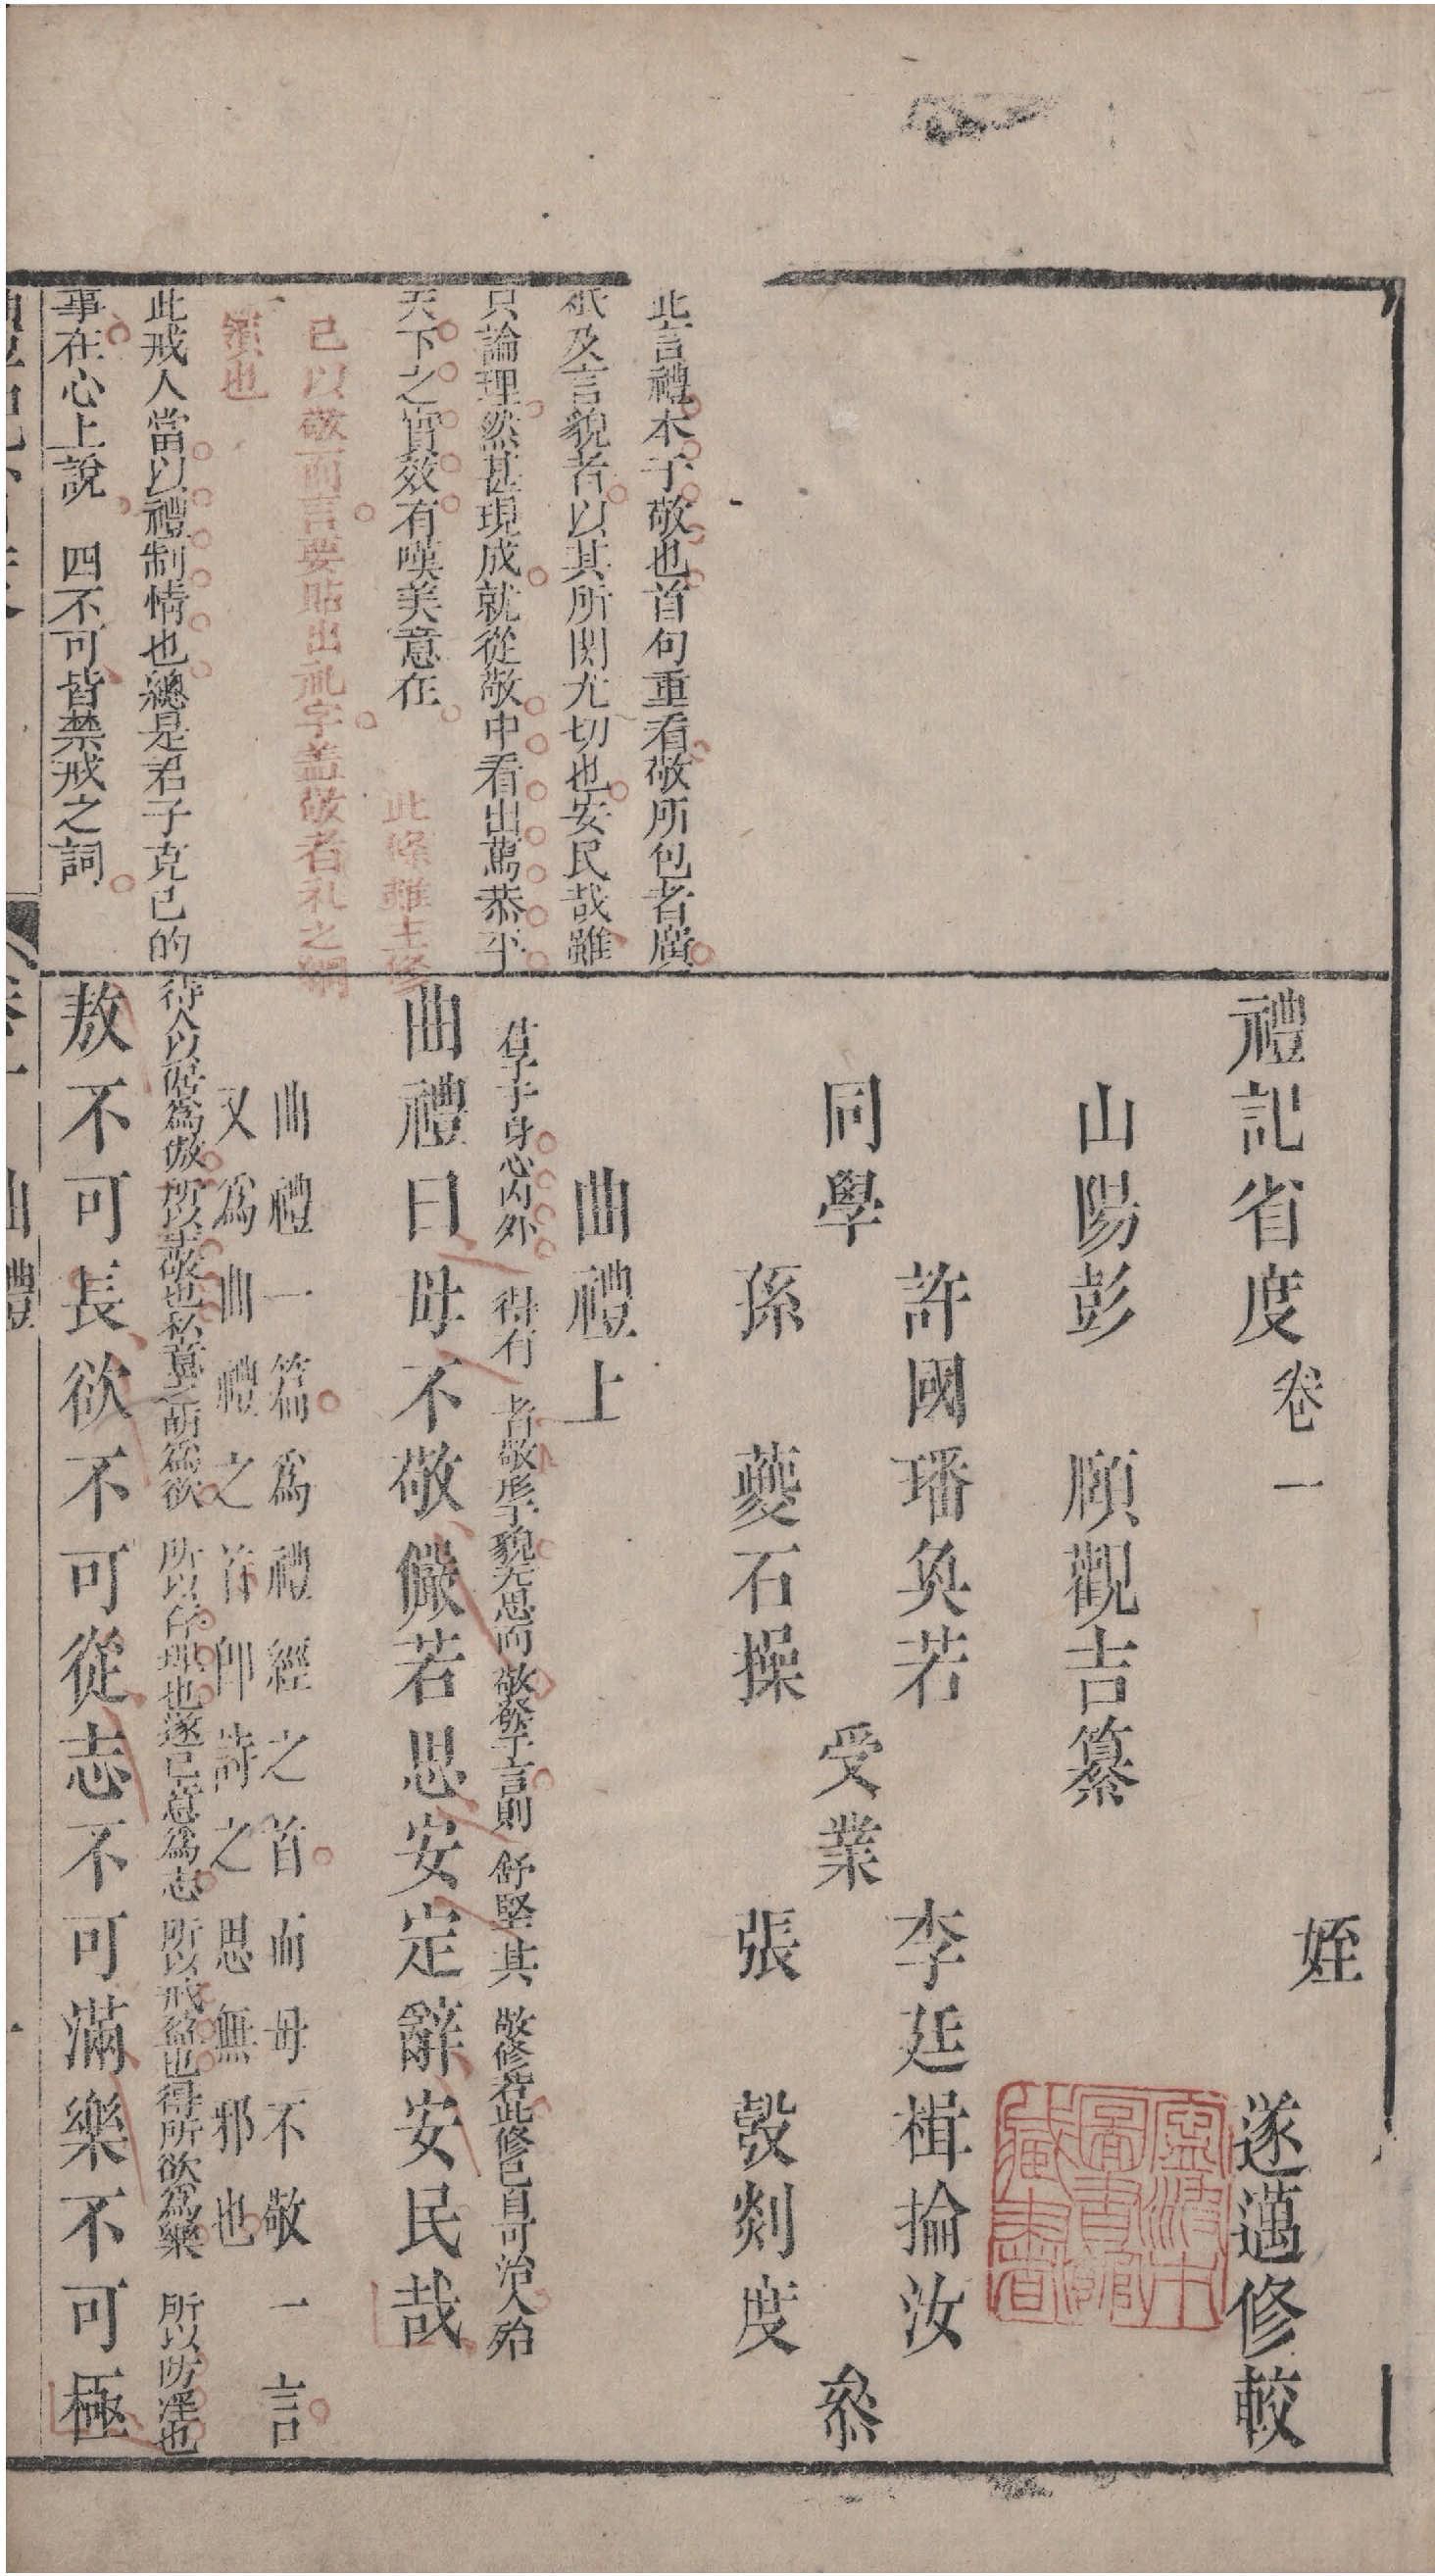 禮記省度卷一
姪 遂邁修較
山陽彭 頤觀吉纂
許國璠奐若 李廷楫掄汝
同學 受業 叅
孫 夔石操 張 㲄剡度
曲禮上
君子于身心内外 得有
曲禮曰毋不敬儼若思安定辭安民哉
曲禮一篇為禮經之首而毋不敬一言
又為曲禮之首即詩之思無邪也
待人以倨為傲 所以主敬也私意之萌為欲 所以存理也遂己意為志 所以戒盈也得所欲為樂 所以防淫也
敖不可長欲不可從志不可滿樂不可極
此言禮本于敬也首句重看敬所包者廣
祇及言貌者以其所関尤切也安民哉雖
只論理然甚現成就從敬中看出篤恭平
天下之實效有嘆美意在 此條雖主修
己以敬而言要貼出礼字盖敬者礼之綱
領也
此戒人當以禮制情也總是君子克己的
事在心上說 四不可皆禁戒之詞
卷一 曲禮